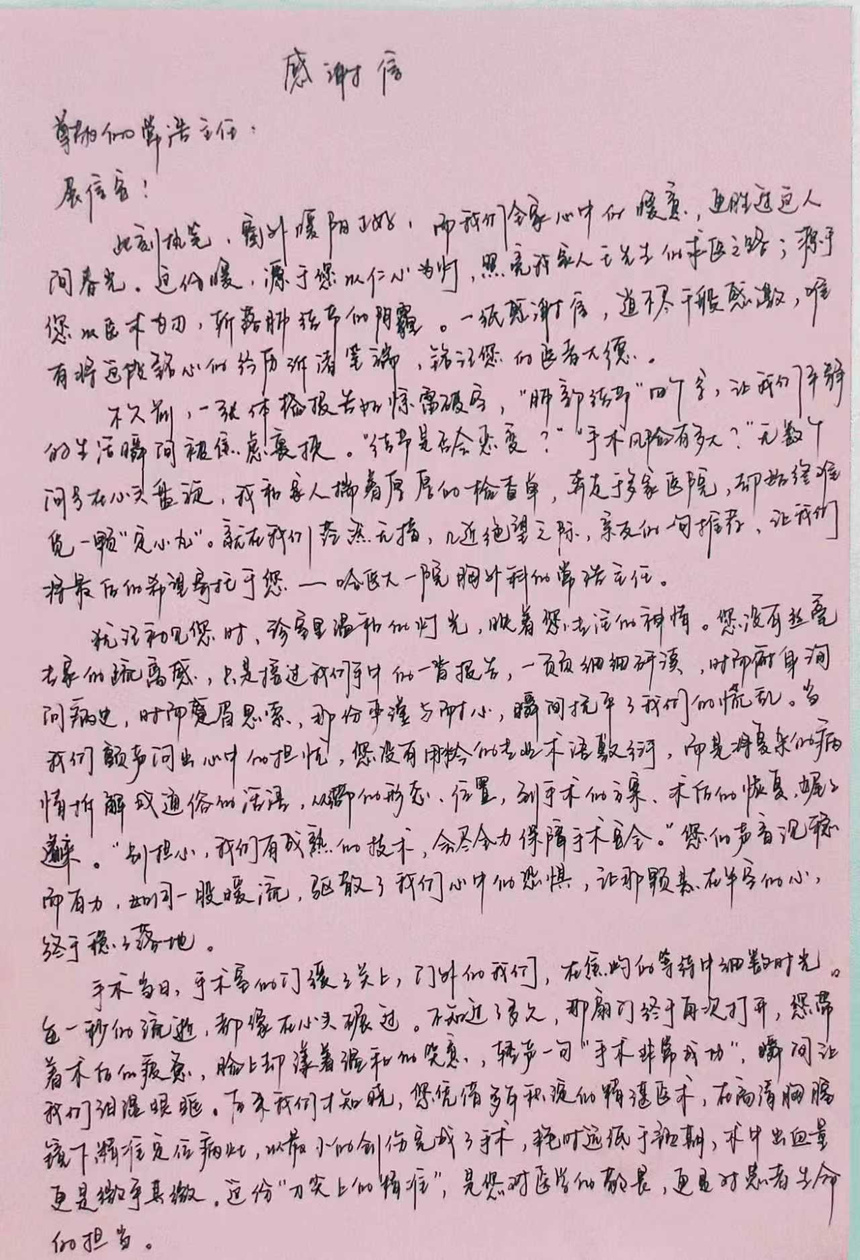 感谢信
尊敬的常浩主任：
展信安！
此刻执笔，窗外暖阳正好，而我们全家心中的暖意，更胜过这人
间春光。这份暖，源于您以仁心为灯，照亮我家人王先生的求医之路；源于
您以医术为刃，斩落肺结节的阴霾。一纸感谢信，道不尽千般感激，唯
有将这段铭心的经历诉诸笔端，铭记您的医者大德。
不久前，一张体检报告如惊雷破空，“肺部结节”四个字，让我们平静
的生活瞬间被焦虑裹挟。“结节是否会恶变？”“手术风险有多大？”无数个
问号在心头盘旋，我和家人揣着厚厚的检查单，奔走于多家医院，却始终难
觅一颗“定心丸”。就在我们茫然无措，几近绝望之际，亲友的一句推荐，让我们
将最后的希望寄托于您——哈医大一院胸外科的常浩主任。
犹记初见您时，诊室里温和的灯光，映着您专注的神情。您没有丝毫
专家的疏离感，只是接过我们手中的一沓报告，一页页细细研读，时而俯身询
问病史，时而蹙眉思索，那份严谨与耐心，瞬间抚平了我们的慌乱。当
我们颤声问出心中的担忧，您没有用冰冷的专业术语敷衍，而是将复杂的病
情拆解成通俗的话语，从结节的形态、位置，到手术的方案、术后的恢复，娓娓
道来。“别担心，我们有成熟的技术，会尽全力保障手术安全。”您的声音沉稳
而有力，如同一股暖流，驱散了我们心中的恐惧，让那颗悬在半空的心，
终于稳稳落地。
手术当日，手术室的门缓缓关上，门外的我们，在焦灼的等待中细数时光。
每一秒的流逝，都像在心头碾过。不知过了多久，那扇门终于再次打开，您带
着术后的疲惫，脸上却漾着温和的笑意，轻声一句“手术非常成功”，瞬间让
我们泪湿眼眶。后来我们才知晓，您凭借多年积淀的精湛医术，在高清胸腔
镜下精准定位病灶，以最小的创伤完成了手术，耗时远低于预期，术中出血量
更是微乎其微。这份“刀尖上的精准”，是您对医学的敬畏，更是对患者生命
的担当。